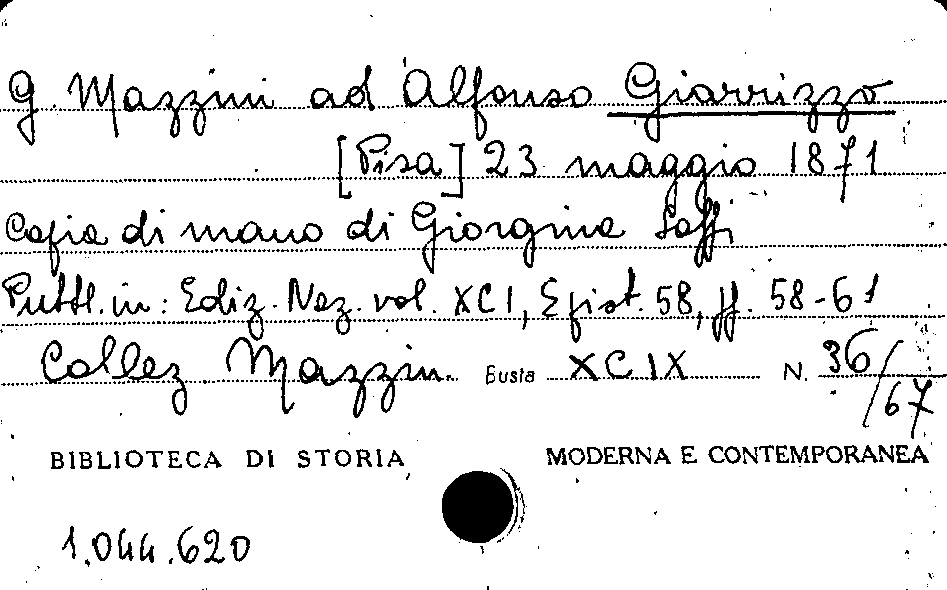 G. Mazzini ad Alfonso Giarrizzo
[Pisa] 23 maggio 1871
Copia di mano di Giorgina Saffi
Pubbl. in: Ediz. Naz. vol. XCI, Epist. 58, pp. 58-61
Collez. Mazzin. Busta XCIX N. 36/67
BIBLIOTECA DI STORIA MODERNA E CONTEMPORANEA
1.044.620